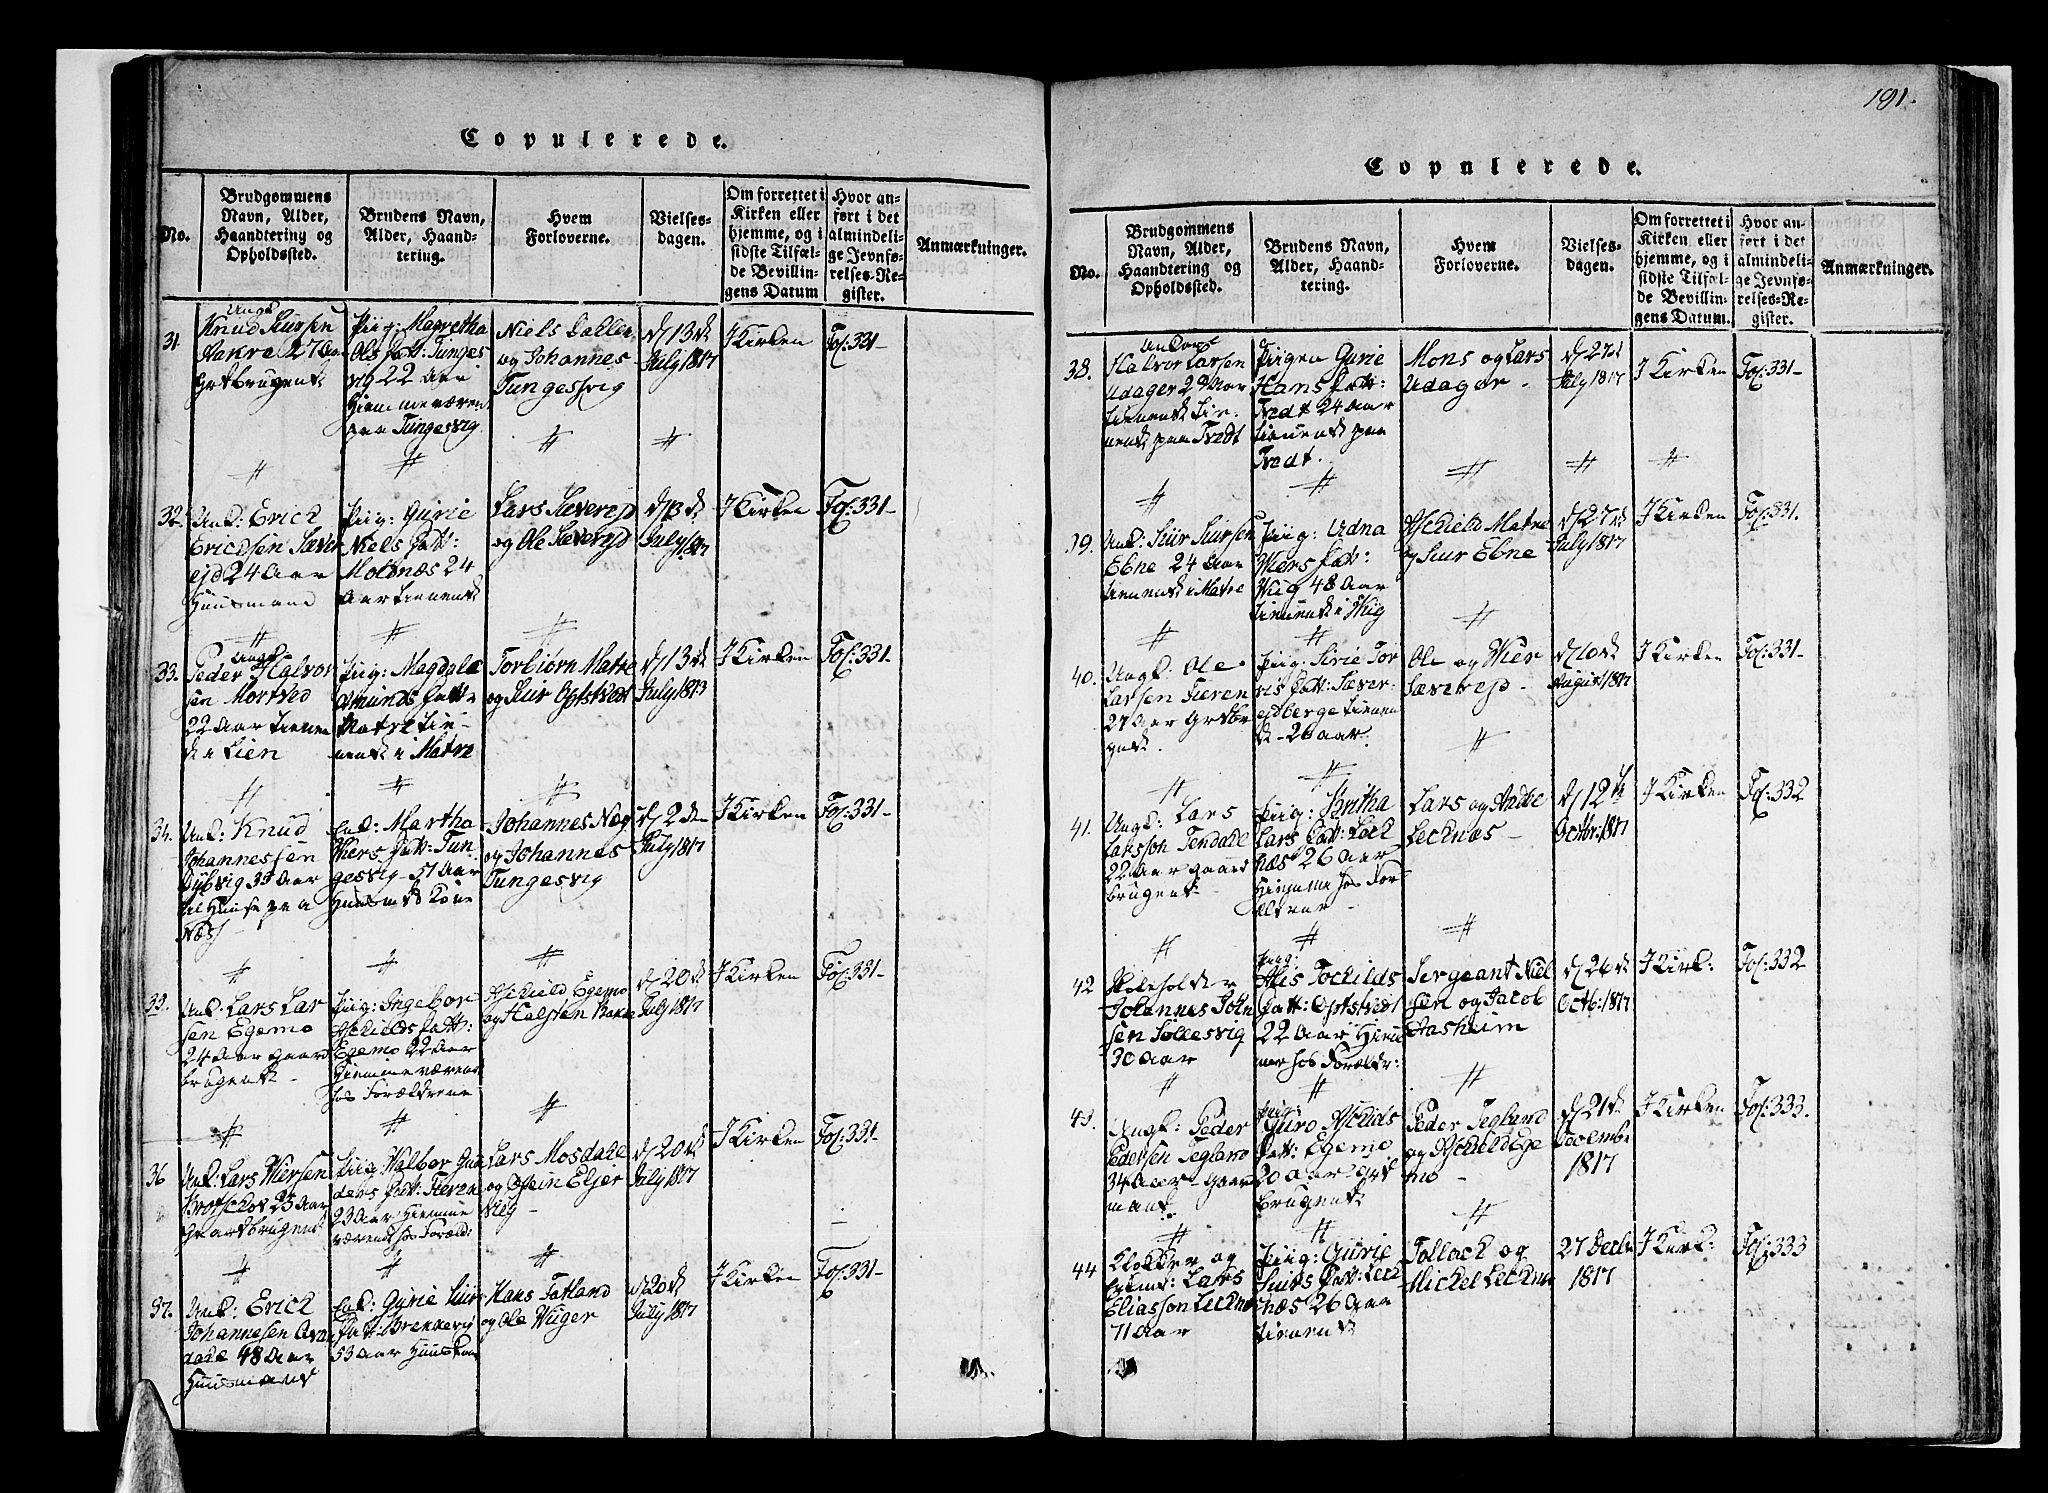 191.
Copulerede.
No.
Brudgommens
Navn, Alder,
Haandtering og
Opholdssted.
Brudens Navn,
Alder, Haand-
tering.
Hvem
Forloverne.
Vielses-
dagen.
Om forrettet i
Kirken eller
hjemme, og i
sidste Tilfæl-
de Bevillin-
gens Datum
Hvor an-
ført i det
almindeli-
ge Jevnfø-
relses-Re-
gister.
Anmærkninger.
31.
Ungk
Knud
Aakre 27 Aar
Piig: Magretha
Ols Datt: Tunges
vig 22 Aar
Hiemmeværen
paa Tungesvig
Niels
og Johannes
Tungesvig
d 13 de
July 1817
I Kirken
Fol: 331-
32.
Unk: Erich
Erichsen Sæver
ejd 24 Aar
Huusmand
Piig: Gurie
Niels Datt:
Molsnæs 24
Aar tienend
Lars Sæverejd
og Ole Sæverejd
d 13 de
July 1817
I Kirken
Fol: 331-
33.
Ungk
Peder Halvor
sen Mortved
22 Aar tienen
de i Lien
Piig: Magdele
Amunds Datt
Matre tie-
nende i Matre
Torbiørn Matre
og Siur
d 13 de
July 1813
I Kirken
Fol: 331-
34.
Unk: Knud
Johannessen
Dybvig 35 Aar
til Huuse paa
Næss
Enk: Martha
Wiers Datt: Tun
gesvig 51 Aar
Huusmds Kone
Johannes Næs
og Johannes
Tungesvig
d 2 den
July 1817
I Kirken
Fol: 331-
35.
Unk: Lars Lar
sen Egemo
24 Aar gaard
brugende
Piig: Ingebor
Aschields Datt:
Egemo 22 Aar
Hiemmeværen
hos Forældrene
Aschield Egemo
og Halsten
d 20 de
July 1817
I Kirken
Fol: 331-
36
Unk: Lars Wiersen
23 Aar
Piig: Walbor
Datt:
23 Aar Hiemme
værend hos Foræld:
Lars Mosdale
og
d 20 de
July 1817
I Kirken
Fol: 331-
37.
Unk: Erich
Johannesen
dahl 48 Aar
Huusmand
Enk: Gyrie Siurs
Datt: Brekkevig
53 Aar
Hans Tatland
og Ole Wiiger
d 20 de
July 1817
I Kirken
Fol: 331-
Copulerede.
No.
Brudgommens
Navn, Alder,
Haandtering og
Opholdssted.
Brudens Navn,
Alder, Haand-
tering.
Hvem
Forloverne.
Vielses-
dagen.
Om forrettet i
Kirken eller
hjemme, og i
sidste Tilfæl-
de Bevillin-
gens Datum.
Hvor an-
ført i det
almindeli-
ge Jevnfø-
relses-Re-
gister.
Anmærkninger.
38.
Halvor Larsen
Udager 29 Aar
paa Tvedt
Piigen Gurie
Hans Datt:
Tvedt 24 Aar
tienend paa
Tvedt.
Mons og Lars
Udager -
d 27 de
July 1817
I Kirken
Fol: 331-
39.
Unk: Siur Siursen
Ebne 24 Aar
tienend i Matre
Piig: Udna
Wiers Datt:
48 Aar
tienend i
Aschield Matre
og Siur Ebne
d 27 de
July 1817
I Kirken
Fol: 331.
40.
Ungk: Ole
Larsen Fieren
27 Aar
Piig: Sirie Tor
ris Datt: Sæver-
ejdberge tienen
d - 26 aar.
Ole og Wier
Sæverejd -
d 10 de
August 1817
I Kirken
Fol: 331-
41.
Ungk: Lars
Larsson Tendahl
22 Aar gaard
brugende
Piig: Britha
Lars Datt: Lech
næs 26 Aar
Hiemme hos For-
ældrene -
Lars og Andve
Lechnæs -
d 12 te
Octbr: 1817
I Kirken
Fol: 332
42
Skoleholder
Johannes John
sen Tollesvig
30 Aar
Piig:
Datt:
22 Aar Hiem
me hos Forældr:
Sergeant Niel
sen og Jacob
Aasheim
d 26 de
Octb: 1817
I Kirk:
Fol: 332
43.
Ungk: Peder
Pedersen Tegland
34 Aar - gaard
mand.
Piig:
Guro Aschilds
Datt: Egemo
20 Aar
brugende
Peder Tegland
og Aschield Ege
mo -
d 21 de
1817
I Kirken
Fol: 333.
44
Klokker og
Enkmd: Lars
Eliasson Lechnæs
71 Aar
Piig: Gurie
Siurs Datt: Lech
næs 26 Aar
tienend
Tollach og
Michel Lechnæs
27 Decbr
1817
I Kirk:
Fol: 333